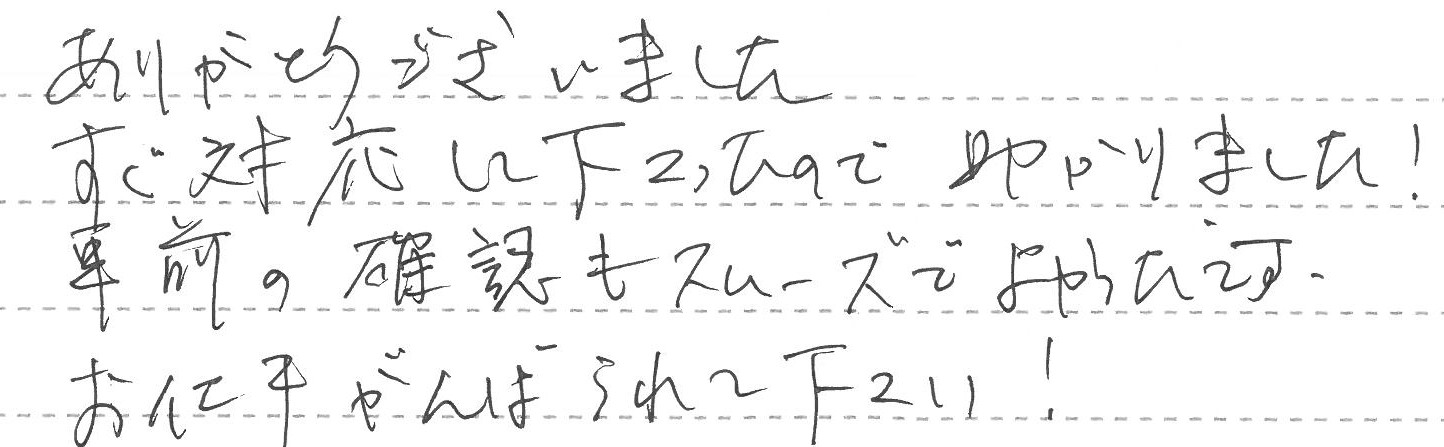 ありがとうございました
すぐ対応して下さったので助かりました!
事前の確認もスムーズでよかったです.
お仕事がんばられて下さい!